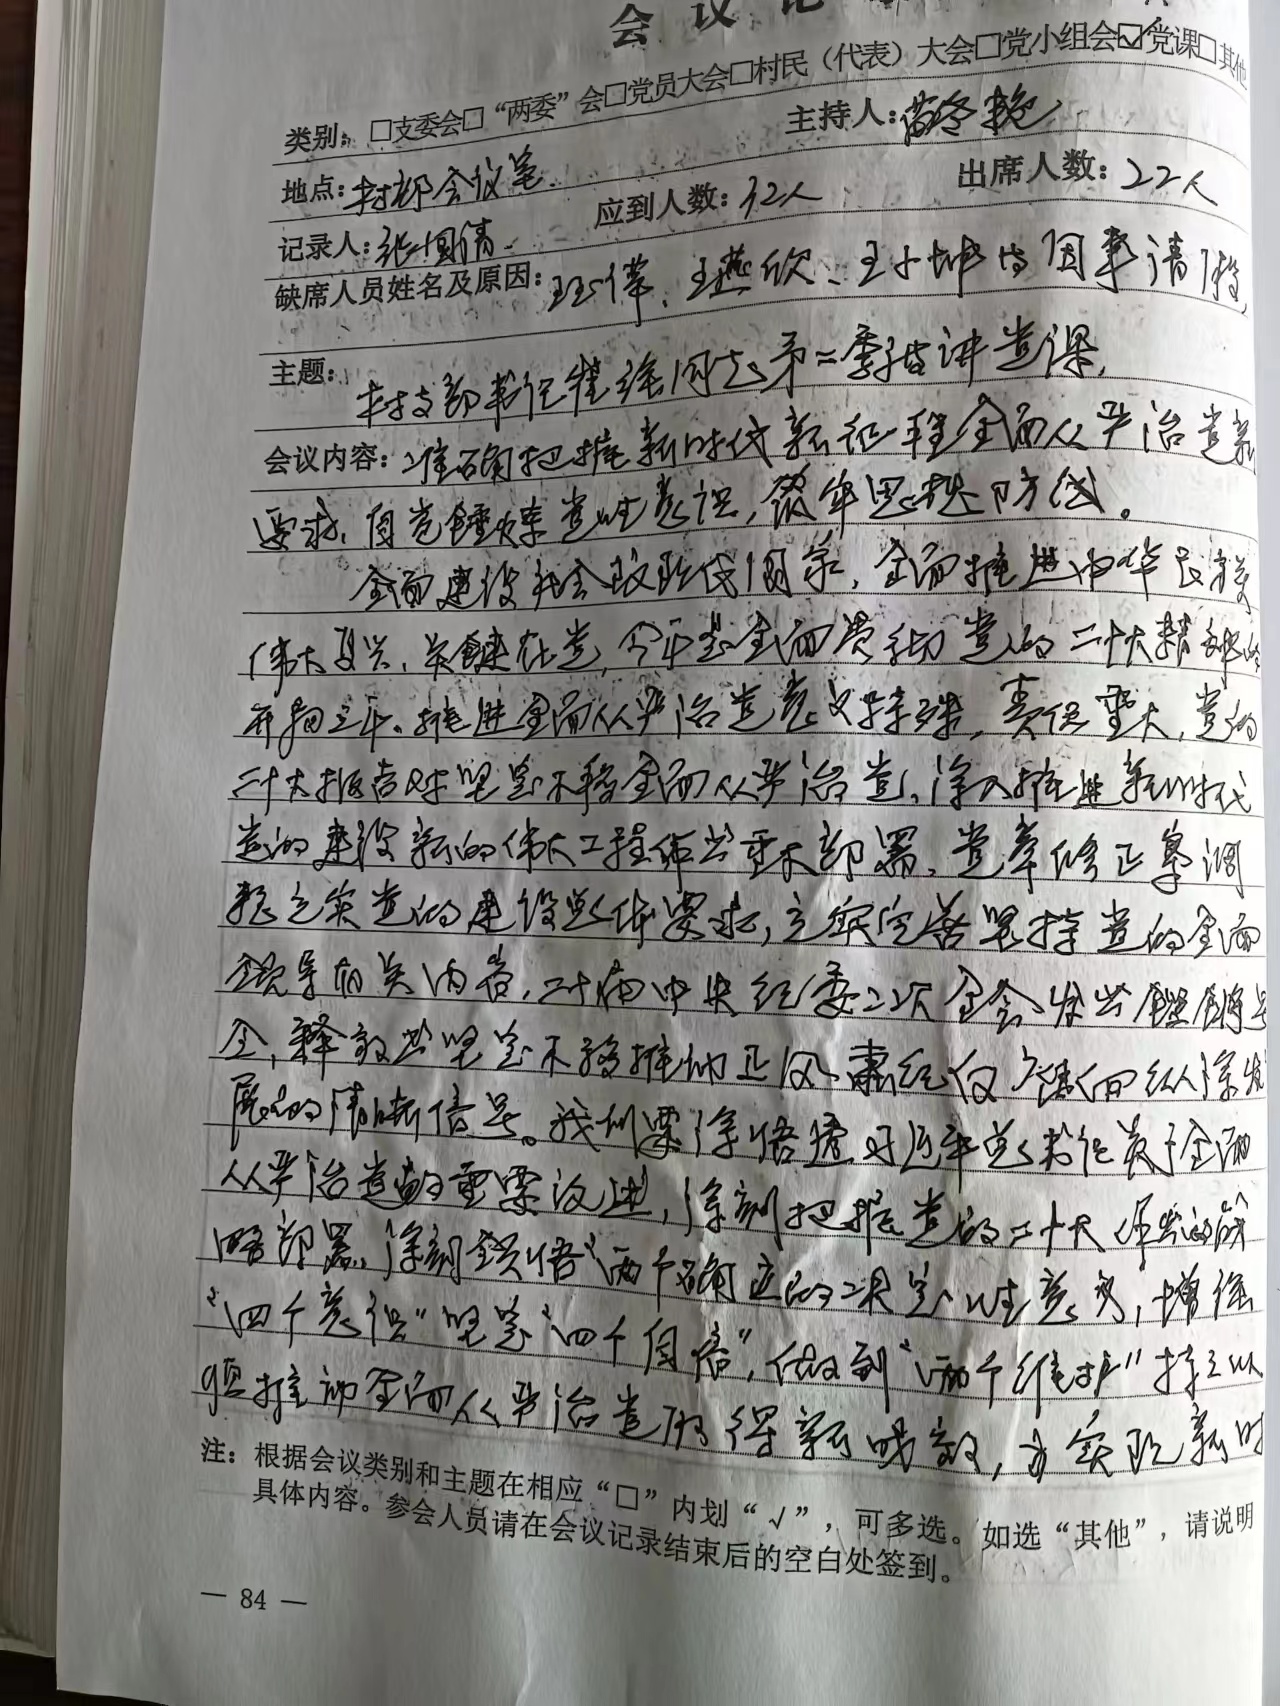 会议记
类别：□支委会□“两委”会□党员大会□村民（代表）大会□党小组会☑党课□其他
地点：村部会议室 主持人：
记录人：张国清 应到人数：32人 出席人数：22人
缺席人员姓名及原因：王伟、王燕欣、王小坤 因事请假
主题：
村支部书记 同志第二季度讲党课
会议内容：准确把握新时代新征程全面从严治党新
要求，自觉锤炼党性意识，筑牢思想防线。
全面建设社会现代国家，全面推进中华民族
伟大复兴，关键在党，今年是全面贯彻党的二十大精神的
开局之年。推进全面从严治党意义特殊，责任重大，党的
二十大报告对坚定不移全面从严治党、深入推进新时代
党的建设新的伟大工程作出重大部署，党章修正案调
整充实党的建设总体要求，充实完善坚持党的全面
领导有关内容，二十届中央纪委二次全会发出
令，释放出坚定不移推动正风肃纪反 向纵深发
展的清晰信号。我们要深悟透习近平总书记关于全面
从严治党的重要论述，深刻把握党的二十大作出的战
略部署，深刻领悟“两个确立的决定性意义，增强
“四个意识”坚定“四个自信”，做到“两个维护”持之以
恒推动全面从严治党取得新成效，为实现新时
注：根据会议类别和主题在相应“□”内划“√”，可多选。如选“其他”，请说明
具体内容。参会人员请在会议记录结束后的空白处签到。
— 84 —